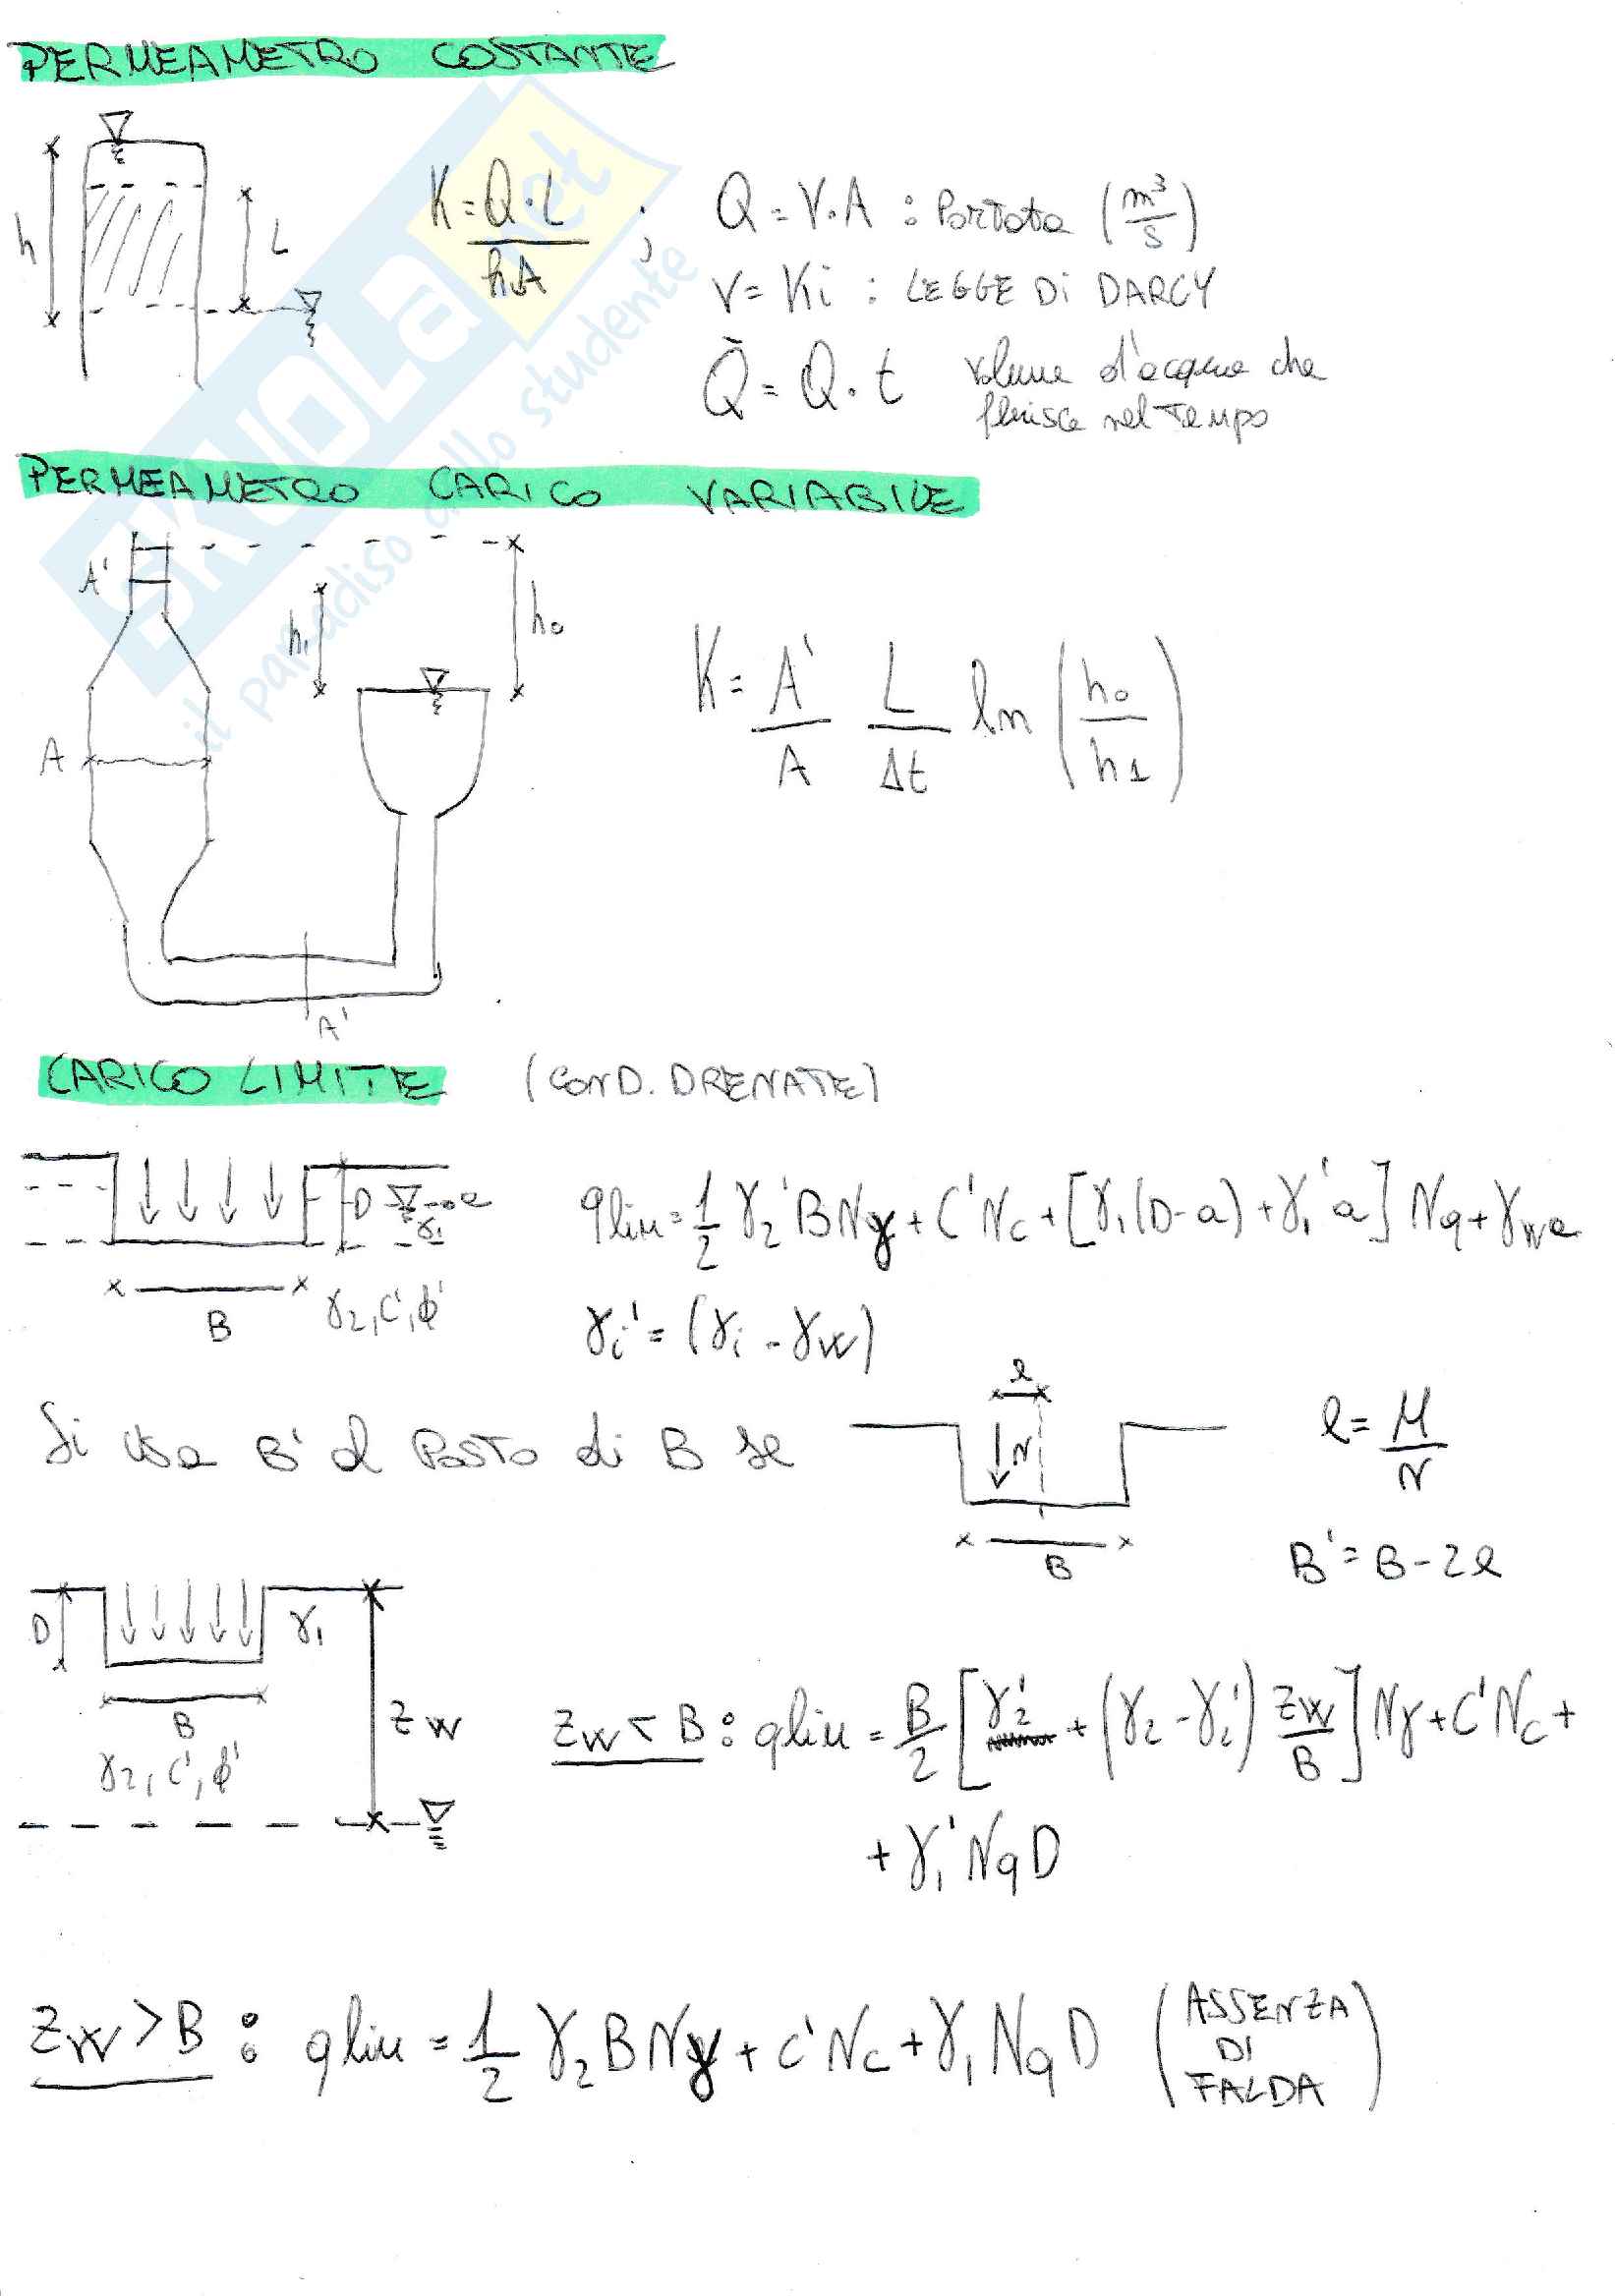 PERMEAMETRO COSTANTE
h
L
K = Q·L / h·A ; Q = V·A : Portata (m³/s)
V = Ki : LEGGE DI DARCY
Q̄ = Q·t volume d'acqua che
fluisce nel tempo
SKUOLA.net
il paradiso dello studente
PERMEAMETRO CARICO VARIABILE
A'
h₁
h₀
A
A'
K = A'/A L/Δt ln (h₀/h₁)
CARICO LIMITE (COND. DRENATE)
D
a
γ₁
B
γ₂, C', ϕ'
qlim = 1/2 γ₂' B Nγ + C' Nc + [γ₁(D-a) + γ₁' a] Nq + γw a
γi' = (γi - γw)
Si usa B' al Posto di B se
e
N
B
e = M/N
B' = B - 2e
D
γ₁
B
γ₂, C', ϕ'
zw
zw < B : qlim = B/2 [γ₂' + (γ₂ - γ₂') zw/B] Nγ + C' Nc +
+ γ₁' Nq D
zw > B : qlim = 1/2 γ₂ B Nγ + C' Nc + γ₁ Nq D (ASSENZA DI FALDA)